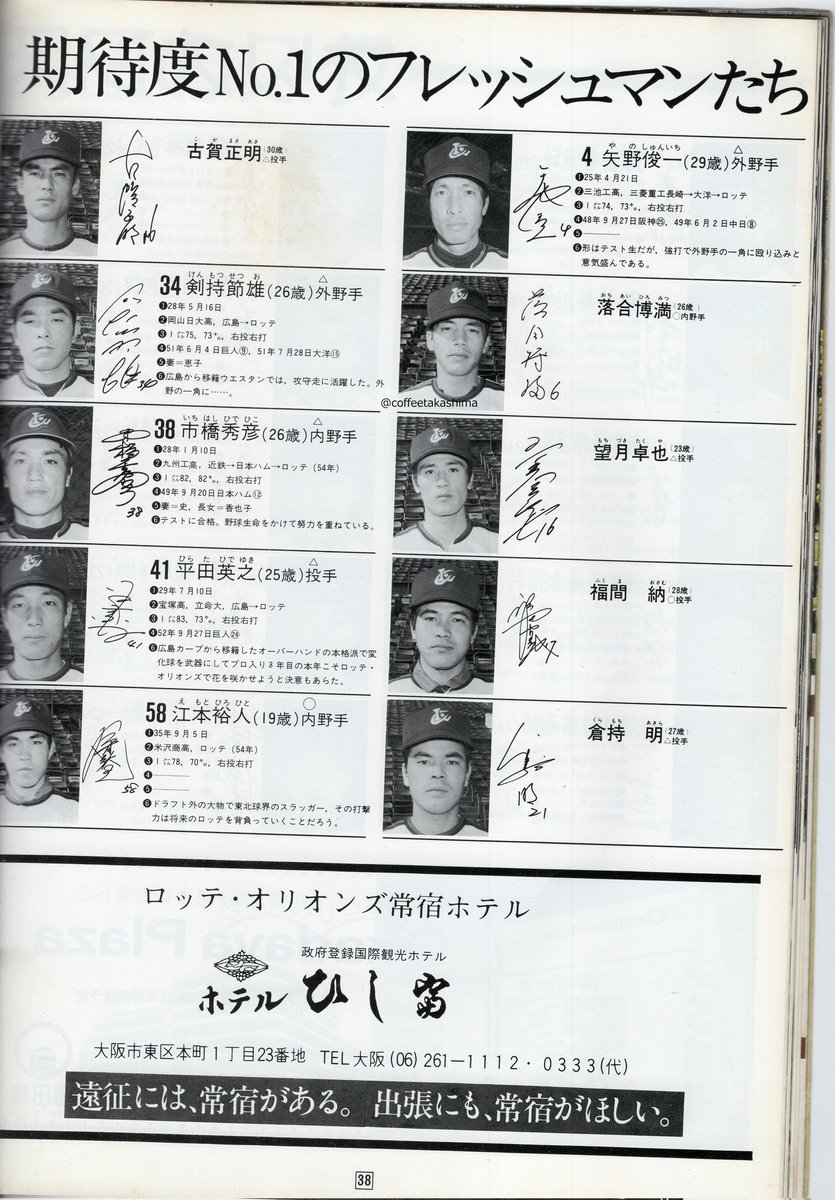 期待度No.1のフレッシュマンたち
こがまさあき
古賀正明(30歳)△投手
34 剣持節雄(26歳)外野手
けんもつせつお
△
❶28年5月16日
❷岡山日大高，広島→ロッテ
❸1メートル75，73キロ，右投右打
❹51年6月4日巨人⑨，51年7月28日大洋⑮
❺妻＝恵子
❻広島から移籍ウエスタンでは，攻守走に活躍した。外
野の一角に……。
いちはしひでひこ
△
38 市橋秀彦(26歳)内野手
❶28年1月10日
❷九州工高，近鉄→日本ハム→ロッテ(54年)
❸1メートル82，82キロ，右投右打
❹49年9月20日日本ハム⑫
❺妻＝史，長女＝香也子
❻テストに合格。野球生命をかけて努力を重ねている。
38
ひらたひでゆき
△
41 平田英之(25歳)投手
❶29年7月10日
❷宝塚高，立命大，広島→ロッテ
❸1メートル83，73キロ，右投右打
❹52年9月27日巨人㉔
❻広島カープから移籍したオーバーハンドの本格派で変
化球を武器にしてプロ入り3年目の本年こそロッテ・
オリオンズで花を咲かせようと決意もあらた。
41
えもとひろひと
○
58 江本裕人(19歳)内野手
❶35年9月5日
❷米沢商高，ロッテ(54年)
❸1メートル78，70キロ，右投右打
❹――
❺――
❻ドラフト外の大物で東北球界のスラッガー，その打撃
力は将来のロッテを背負っていくことだろう。
58
やのしゅんいち
△
4 矢野俊一(29歳)外野手
❶25年4月21日
❷三池工高，三菱重工長崎→大洋→ロッテ
❸1メートル74，73キロ，右投右打
❹48年9月27日阪神㉕，49年6月2日中日⑧
❺――
❻形はテスト生だが，強打で外野手の一角に殴り込みと
意気盛んである。
4
おちあいひろみつ
落合博満(26歳)○内野手
6
@coffeetakashima
もちづきたくや
望月卓也(23歳)△投手
16
ふくまおさむ
福間 納(28歳)○投手
くらもちあきら
倉持 明(27歳)△投手
21
ロッテ・オリオンズ常宿ホテル
政府登録国際観光ホテル
ホテル ひし富
大阪市東区本町1丁目23番地 TEL大阪(06)261―1112・0333(代)
遠征には、常宿がある。出張にも、常宿がほしい。
38